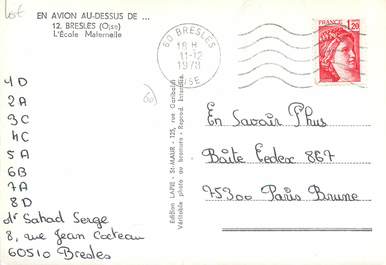 Lot
EN AVION AU-DESSUS DE ...
12. BRESLES (Oise)
L'École Maternelle
60 BRESLES
18 H
11-12
1978
OISE
FRANCE
1,20
60
4D
2A
3C
4C
5A
6B
7A
8D
dr Sahad Serge
8, rue Jean Cocteau
60510 Bresles
Edition LAPIE - St-MAUR - 125, rue Garibaldi
Véritable photo au bromure - Reprod. interdite
En Savoir Plus
Boite Cedex 867
75300 Paris Brune